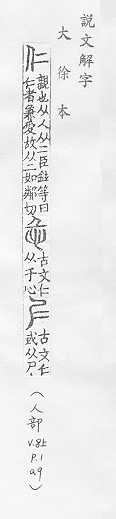 説文解字
大徐本
仁 親也从人从二臣鉉等曰
仁者兼愛故从二如鄰切 古文仁
从千心 古文仁
或从尸
（人部
v.8上
p.1
a9）